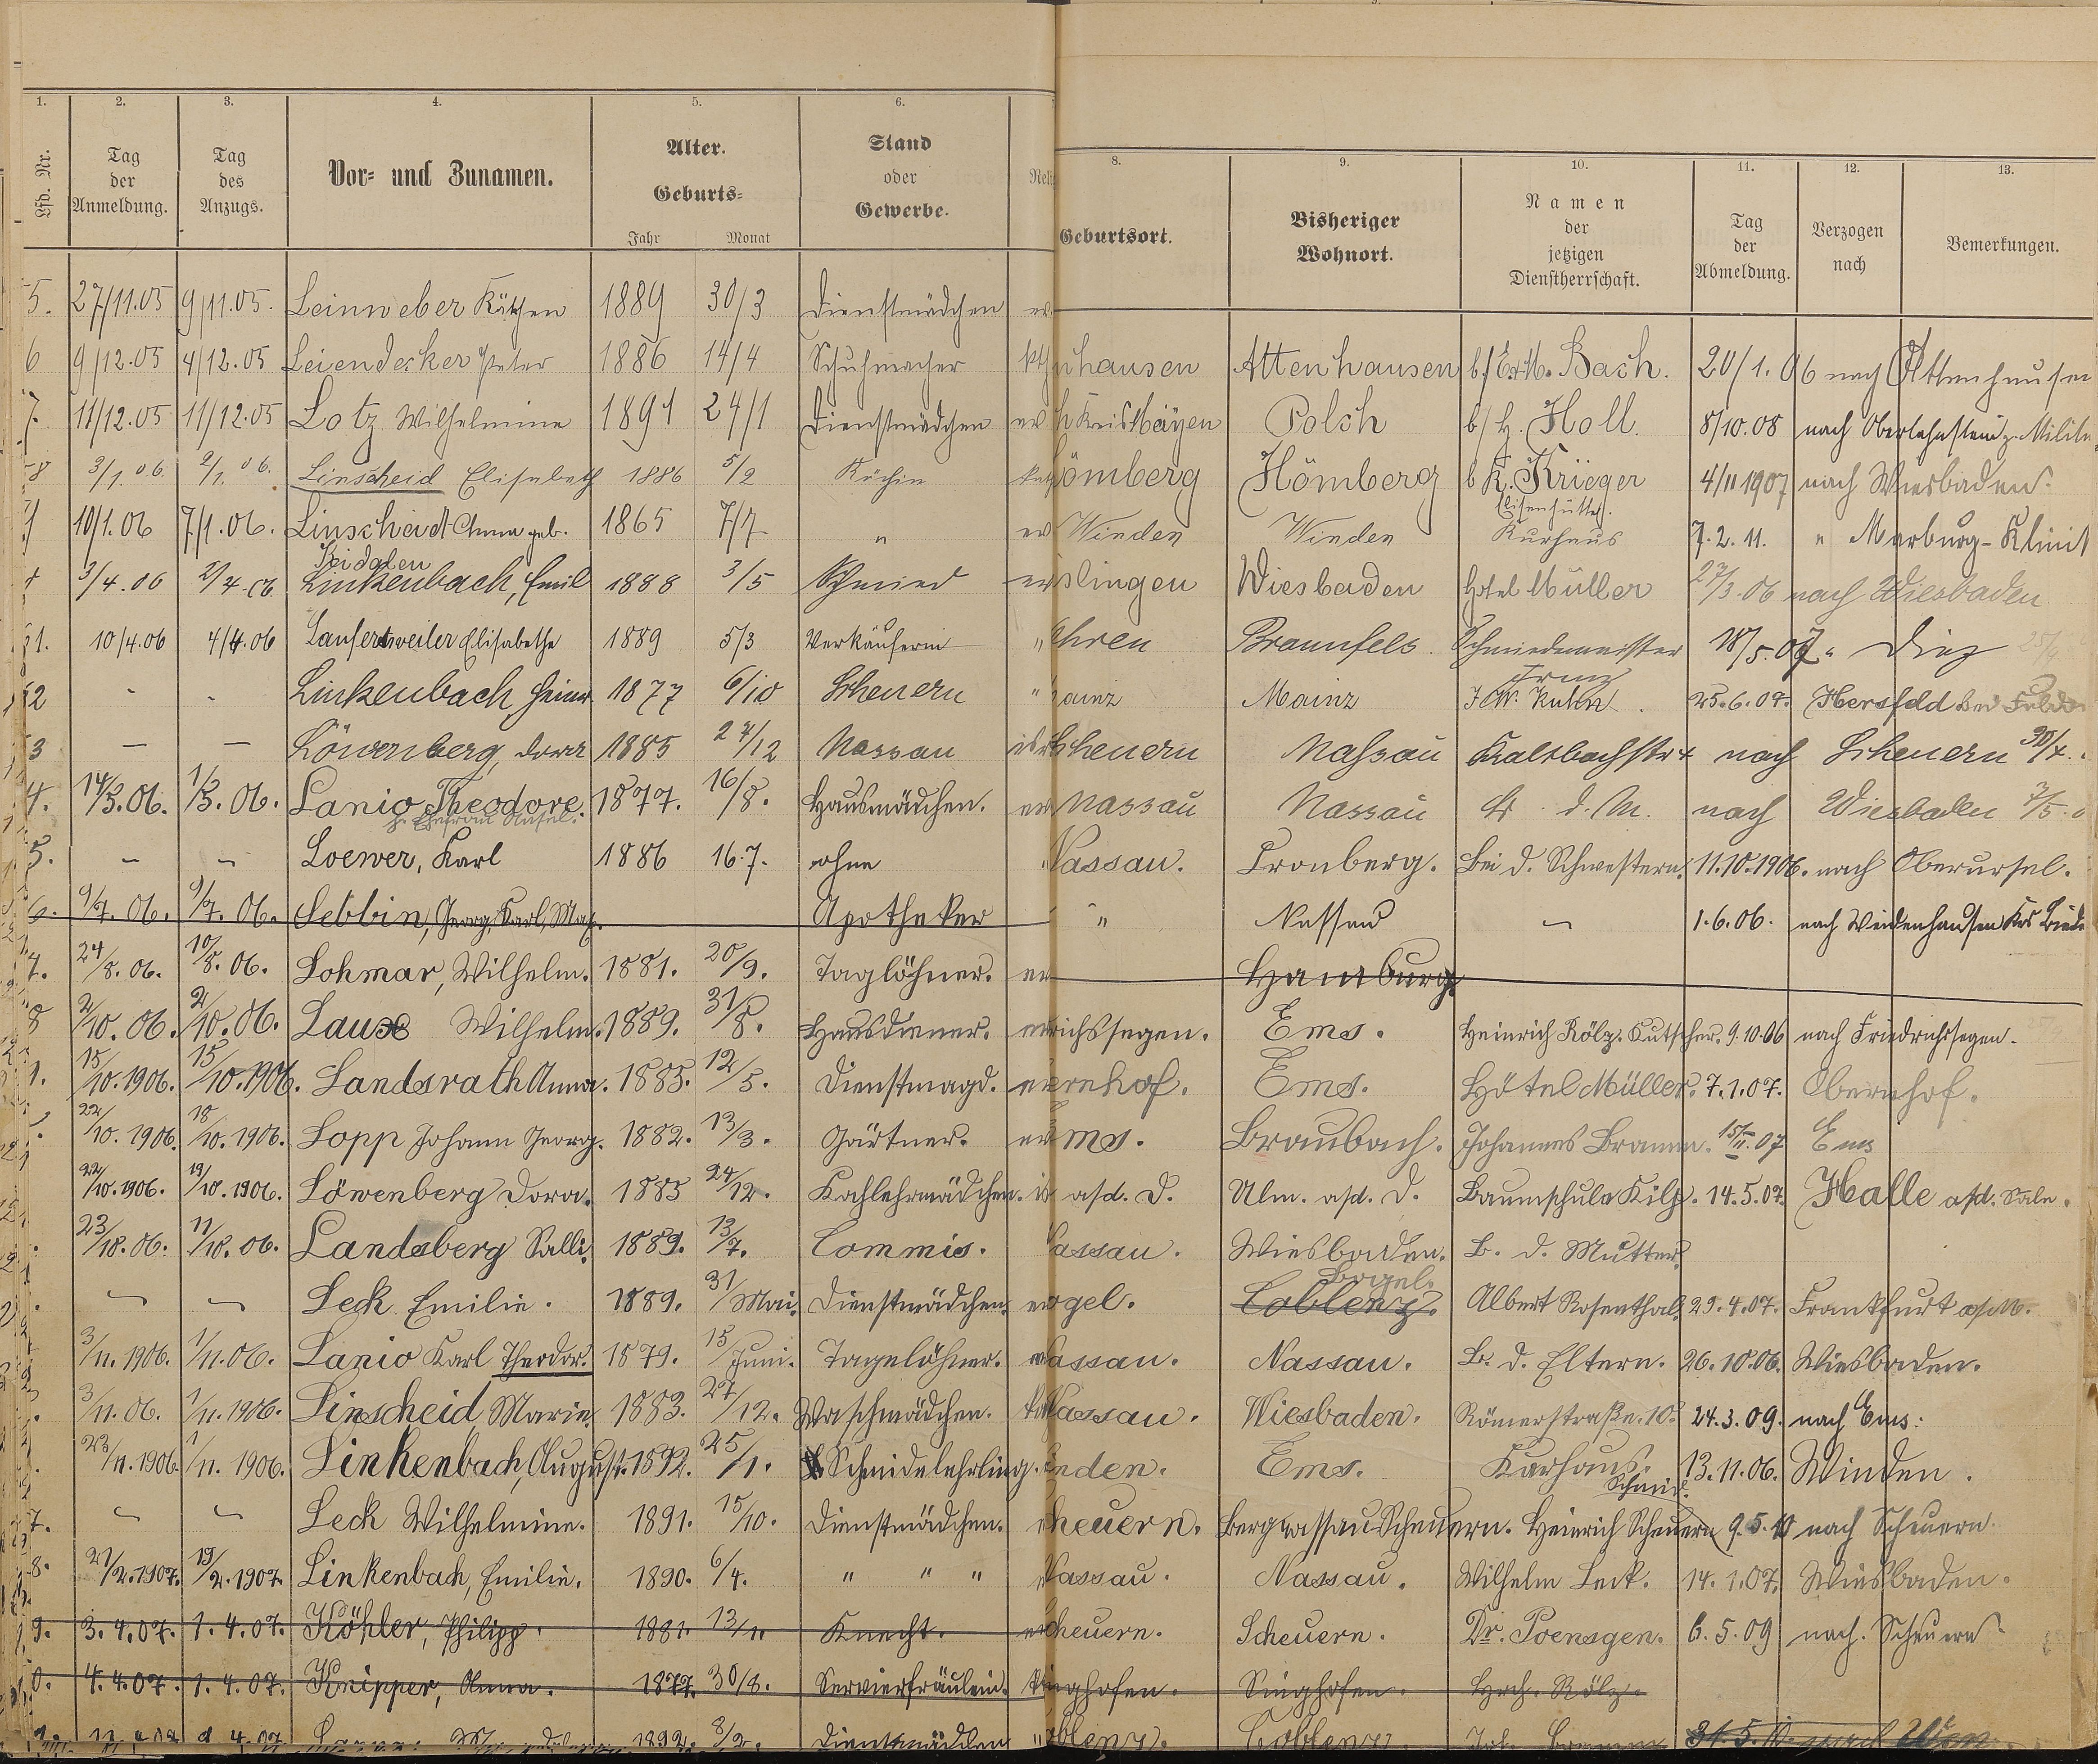 1. 2. 3. 4. 5. 6. 8. 9. 10. 11. 12. 13.
Lfd. Nr. Tag der Anmeldung. Tag des Anzugs. Vor- und Zunamen. Alter. Geburts- Jahr Monat Stand oder Gewerbe. Geburtsort. Bisheriger Wohnort. Namen der jetzigen Dienstherrschaft. Tag der Abmeldung. Verzogen nach Bemerkungen.
5. 27/11.05 9/11.05. Leinweber Käthen 1889 30/3 Dienstmädchen ev
6 9/12.05 4/12.05 Leiendecker Peter 1886 14/4 Schuhmacher kth
nhausen Attenhausen Bach. 20/1.06 nach Attenhausen
7. 11/12.05 11/12.05 Lotz Wilhelmine 1891 24/1 Dienstmädchen ev
h Kreis Mayen Polch b/ H. Holl. 8/10.08 nach Oberlahnstein z. Militär
8 3/1.06. 2/1.06. Linscheid Elisabeth 1886 5/2 Köchin kath
ömberg Hömberg b K. Krieger 4/11 1907 nach Wiesbaden.
Elisenhütte.
10/1.06 7/1.06. Linscheid Anna geb. 1865 7/7 " ev
Winden Winden Kurhaus 7.2.11. " Marburg-Klinik
3/4.06 2/4.06 Linkenbach, Emil 1888 3/5 Schmied ev
slingen Wiesbaden Hotel Müller 27/3.06 nach Wiesbaden
1. 10/4.06 4/4.06 Laufersweiler Elisabethe 1889 5/3 Verkäuferin "
ehren Braunfels. Schmiedemeister 18/5.07 " Diez
2 - - Linkenbach Heinr. 1877 6/10 Scheuern "
ainz Mainz J.W. Kuhn. 25.6.07. Hersfeld bei Fulda
3 — — Löwenberg, Dora 1885 24/12 Nassau isr
Scheuern Nassau Kaltbachstr 4 nach Scheuern 30/4.
4. 14/3.06. 1/3.06. Lanio Theodore. 1877. 16/8. Hausmädchen. ev
Nassau Nassau b. d. M. nach Wiesbaden 3/5.
5. - - Loewer, Karl 1886 16.7. ohne
Nassau. Cronberg. Bei d. Schwestern. 11.10.1906. nach Oberursel.
6. 9/7.06. 9/7.06. Lebbin, Georg, Karl, Max. Apotheker
" Nassau - 1.6.06. nach Weidenhausen Krs Bieden
7. 24/8.06. 10/8.06. Lohmar, Wilhelm. 1881. 20/9. Taglöhner. ev
Hamburg.
8 2/10.06. 2/10.06. Laux Wilhelm. 1889. 31/8. Hausdiener. ev
richssegen. Ems. Heinrich Rölz. Kutscher. 9.10.06 nach Friedrichssegen.
15/10.1906. 15/10.1906. Landsrath Anna. 1885. 12/5. Dienstmagd. ev
ernhof. Ems. Hôtel Müller. 7.1.07. Obernhof.
22/10.1906. 18/10.1906. Lopp Johann Georg. 1882. 13/3. Gärtner. ev
ms. Braubach. Johannes Bramm. 15/II.07 Ems
22/10.1906. 19/10.1906. Löwenberg Dora. 1885 24/12. Kochlehrmädchen. is
a/d. D. Ulm. a/d. D. Baumschule Kilp. 14.5.07. Halle a/d. Sale.
23/10.06. 11/10.06. Landsberg Salli. 1889. 13/7. Commis.
assau. Wiesbaden. B. d. Mutter.
Bogel.
- - Leck Emilie. 1889. 31/Mai. Dienstmädchen. ev
gel. Coblenz. Albert Rosenthal. 29.4.07. Frankfurt a/M.
3/11.1906. 1/11.06. Lanio Karl Theodor. 1879. 15/Juni. Tagelöhner. ev
assau. Nassau. B. d. Eltern. 26.10.06. Wiesbaden.
3/11.06. 1/11.1906. Linscheid Marie 1883. 27/12. Waschmädchen. k
Nassau. Wiesbaden. Römerstraße. 10. 24.3.09. nach Ems.
23/11.1906. 1/11.1906. Linkenbach, August. 1892. 25/1. Schmidelehrling.
inden. Ems. Kurhaus. 13.11.06. Winden.
Schmid.
7. - - Leck Wilhelmine. 1891. 15/10. Dienstmädchen.
cheuern. Bergnassau Scheuern. Heinrich Scheuern 9.5.10 nach Scheuern.
8. 21/2.1907. 19/2.1907. Linkenbach, Emilie. 1890. 6/4. " " "
Nassau. Nassau. Wilhelm Leck. 14.1.07. Wiesbaden.
9. 3.4.07. 1.4.07. Köhler, Philipp. 1881. 13/11. Knecht. ev
cheuern. Scheuern. Dr. Poensgen. 6.5.09 nach. Scheuern
0. 4.4.07. 1.4.07. Knipper, Anna. 1877. 30/8. Servierfräulein. k
inghofen. Singhofen. Hrch. Rölz.
1892. 8/2. Dienstmädchen "
oblenz. Coblenz. 31.5.10.